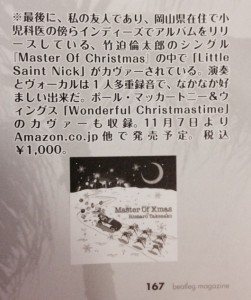 ※最後に、私の友人であり、岡山県在住で小
児科医の傍らインディーズでアルバムをリリ
ースしている、竹迫倫太郎のシングル
『Master Of Christmas』の中で『Little
Saint Nick』がカヴァーされている。演奏
とヴォーカルは1人多重録音で、なかなか好
ましい出来だ。ポール・マッカートニー&ウ
ィングス『Wonderful Christmastime』
のカヴァーも収録。11月7日より
Amazon.co.jp他で発売予定。税込
¥1,000。
Master Of Xmas
Rintaro Takesako
167 beatleg magazine